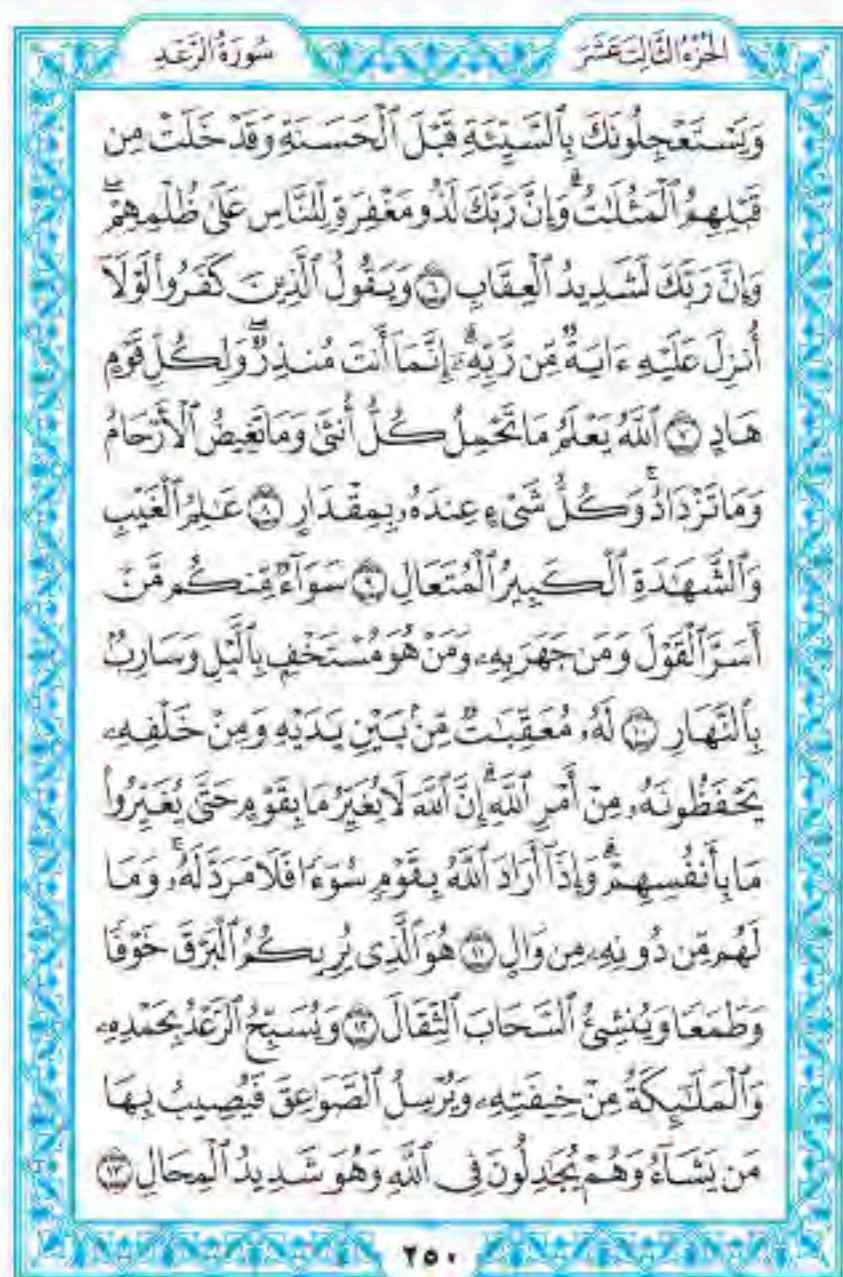 الجُزْءُ الثَّالِثَ عَشَرَ
سُورَةُ الرَّعْدِ
وَيَسْتَعْجِلُونَكَ بِٱلسَّيِّئَةِ قَبْلَ ٱلْحَسَنَةِ وَقَدْ خَلَتْ مِن
قَبْلِهِمُ ٱلْمَثُلَٰتُ ۗ وَإِنَّ رَبَّكَ لَذُو مَغْفِرَةٍ لِّلنَّاسِ عَلَىٰ ظُلْمِهِمْ ۖ
وَإِنَّ رَبَّكَ لَشَدِيدُ ٱلْعِقَابِ ۝٦ وَيَقُولُ ٱلَّذِينَ كَفَرُوا۟ لَوْلَآ
أُنزِلَ عَلَيْهِ ءَايَةٌ مِّن رَّبِّهِۦٓ ۗ إِنَّمَآ أَنتَ مُنذِرٌ ۖ وَلِكُلِّ قَوْمٍ
هَادٍ ۝٧ ٱللَّهُ يَعْلَمُ مَا تَحْمِلُ كُلُّ أُنثَىٰ وَمَا تَغِيضُ ٱلْأَرْحَامُ
وَمَا تَزْدَادُ ۖ وَكُلُّ شَىْءٍ عِندَهُۥ بِمِقْدَارٍ ۝٨ عَٰلِمُ ٱلْغَيْبِ
وَٱلشَّهَٰدَةِ ٱلْكَبِيرُ ٱلْمُتَعَالِ ۝٩ سَوَآءٌ مِّنكُم مَّنْ
أَسَرَّ ٱلْقَوْلَ وَمَن جَهَرَ بِهِۦ وَمَنْ هُوَ مُسْتَخْفٍۭ بِٱلَّيْلِ وَسَارِبٌۢ
بِٱلنَّهَارِ ۝١٠ لَهُۥ مُعَقِّبَٰتٌ مِّنۢ بَيْنِ يَدَيْهِ وَمِنْ خَلْفِهِۦ
يَحْفَظُونَهُۥ مِنْ أَمْرِ ٱللَّهِ ۗ إِنَّ ٱللَّهَ لَا يُغَيِّرُ مَا بِقَوْمٍ حَتَّىٰ يُغَيِّرُوا۟
مَا بِأَنفُسِهِمْ ۗ وَإِذَآ أَرَادَ ٱللَّهُ بِقَوْمٍ سُوٓءًا فَلَا مَرَدَّ لَهُۥ ۚ وَمَا
لَهُم مِّن دُونِهِۦ مِن وَالٍ ۝١١ هُوَ ٱلَّذِى يُرِيكُمُ ٱلْبَرْقَ خَوْفًا
وَطَمَعًا وَيُنشِئُ ٱلسَّحَابَ ٱلثِّقَالَ ۝١٢ وَيُسَبِّحُ ٱلرَّعْدُ بِحَمْدِهِۦ
وَٱلْمَلَٰٓئِكَةُ مِنْ خِيفَتِهِۦ وَيُرْسِلُ ٱلصَّوَٰعِقَ فَيُصِيبُ بِهَا
مَن يَشَآءُ وَهُمْ يُجَٰدِلُونَ فِى ٱللَّهِ وَهُوَ شَدِيدُ ٱلْمِحَالِ ۝١٣
٢٥٠